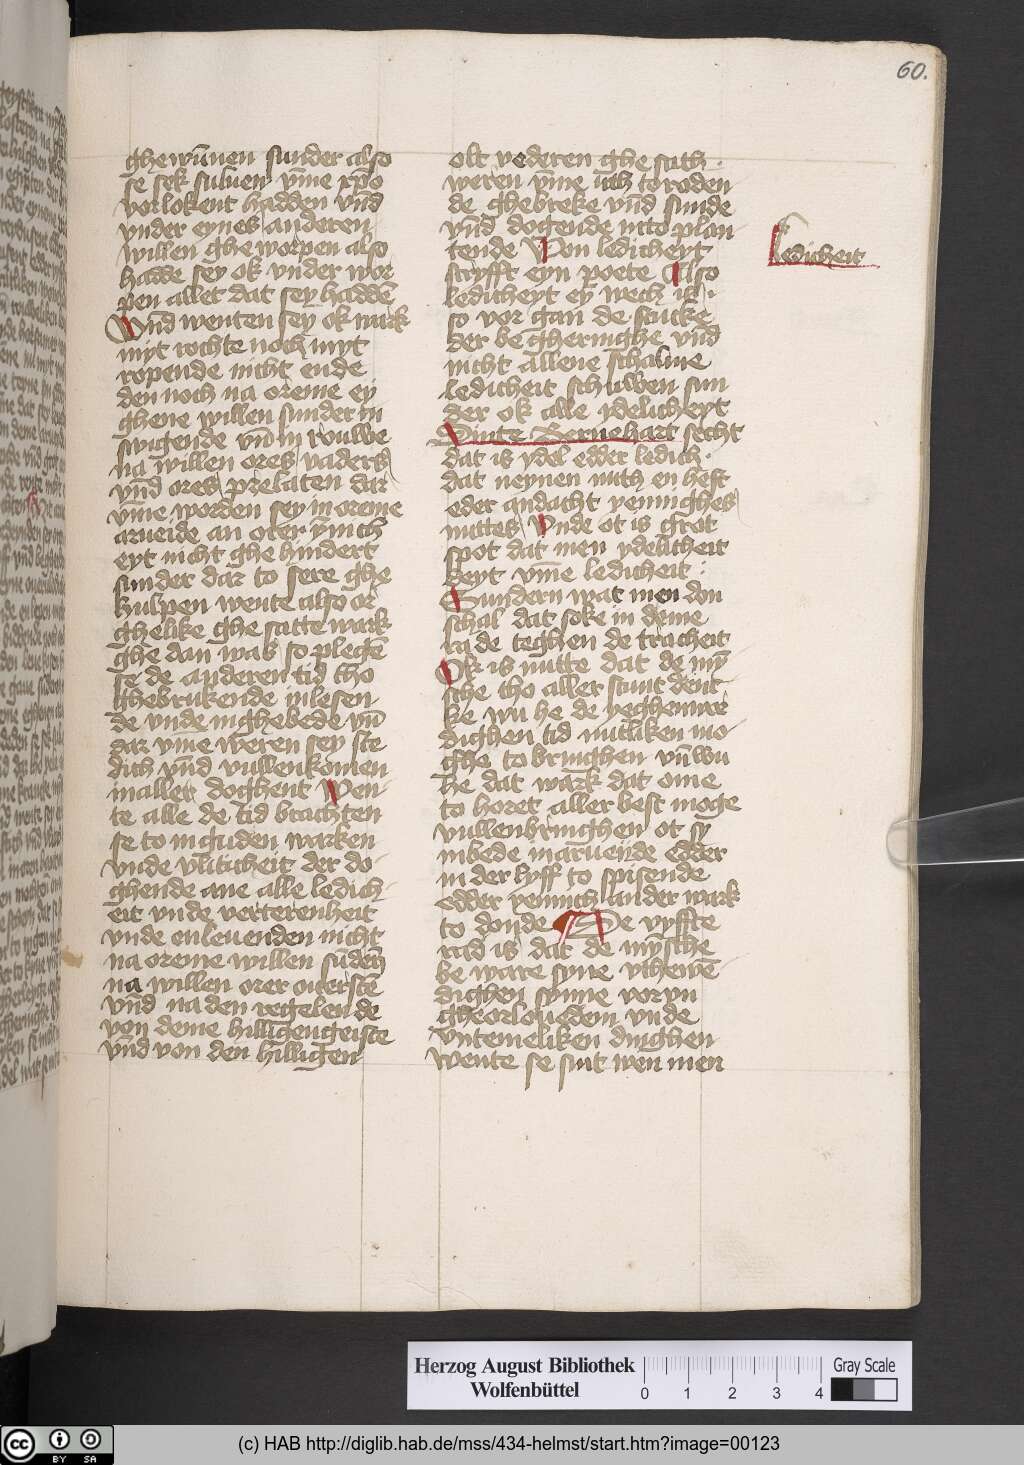 60.
ghewūnen sunder also
se sek suluen vm̄e xp̄o
vorlokent hadden vn̄d
vnder eynes anderen
willen ghe worpen also
hadde sey ok vnder wor
pen allet dat sey haddē
Vn̄d wenten sey ok nark
myt rochte noch myt
ropende nicht ende
den noch na oreme ey
ghene willen sunder in
swigende vn̄ in rouwe
na willen ores vaders
vn̄d ores prelaten dar
vm̄e worden sey in oreme
arueide an orer ȳnich
eyt nicht ghe hindert
sunder dar to sere ghe
hulpen wente also or
ghelike ghe satte wark
ghe dan was so plegē
se de anderen tid tho
ghebrukende in lesen
de vnde in ghebede vn̄
dar vme weren sey ste
dich vn̄d vullenkomen
in allet doghent Wen
te alle de tid brachten
se to in guden warken
vnde vliticheit der do
ghende ane alle ledich
eit vnde verterenheit
vnde en leuenden nicht
na oreme willen sūdēn
na willen orer ouerstē
vn̄d na den regelen de
von deme hilligengeiste
vn̄d von den hilligen
olt vederen ghe sath.
weren vm̄e uth to roden
de ghebreke vn̄d sunde
vn̄d dogende into plan
tende Von ledicheyt
scryfft eyn poete Also
ledicheyt ey wech is.
so vor gan de stucke
der be gheringhe vn̄d
nicht allene schalme
ledicheit schuwen sun
der ok alle ydelicheyt
Sinte Bernehart secht
dat is ydel edder ledich.
dat neynen nuth en heft
eder andacht yennighes
nuttes Vnde ot is grot
spot dat men ydelitheit
deyt vm̄e ledicheit :
Sundern wat men don
schal dat soke in deme
ra de teghen de tracheit
Ok is nutte dat de mȳ
sche tho aller stunt dent
ke wu he de yeghenwe
dighen tid nutliken mo
ghe to bringhen vn̄ wu
he dat wark dat ome
to horet aller best moge
vullenbringhen ot sy
in bede in arueinde edder
in der lyff to spisende
edder yennich ander wark
to donde De vyffte
rad is dat de mȳsche
be ware syne vthewē
dighen synne vor vn
gheorloueden vnde
vntemeliken dinghen
wente se sint wen men
Ledicheit
Herzog August Bibliothek
Wolfenbüttel
0 1 2 3 4
Gray Scale
cc BY SA
(c) HAB http://diglib.hab.de/mss/434-helmst/start.htm?image=00123